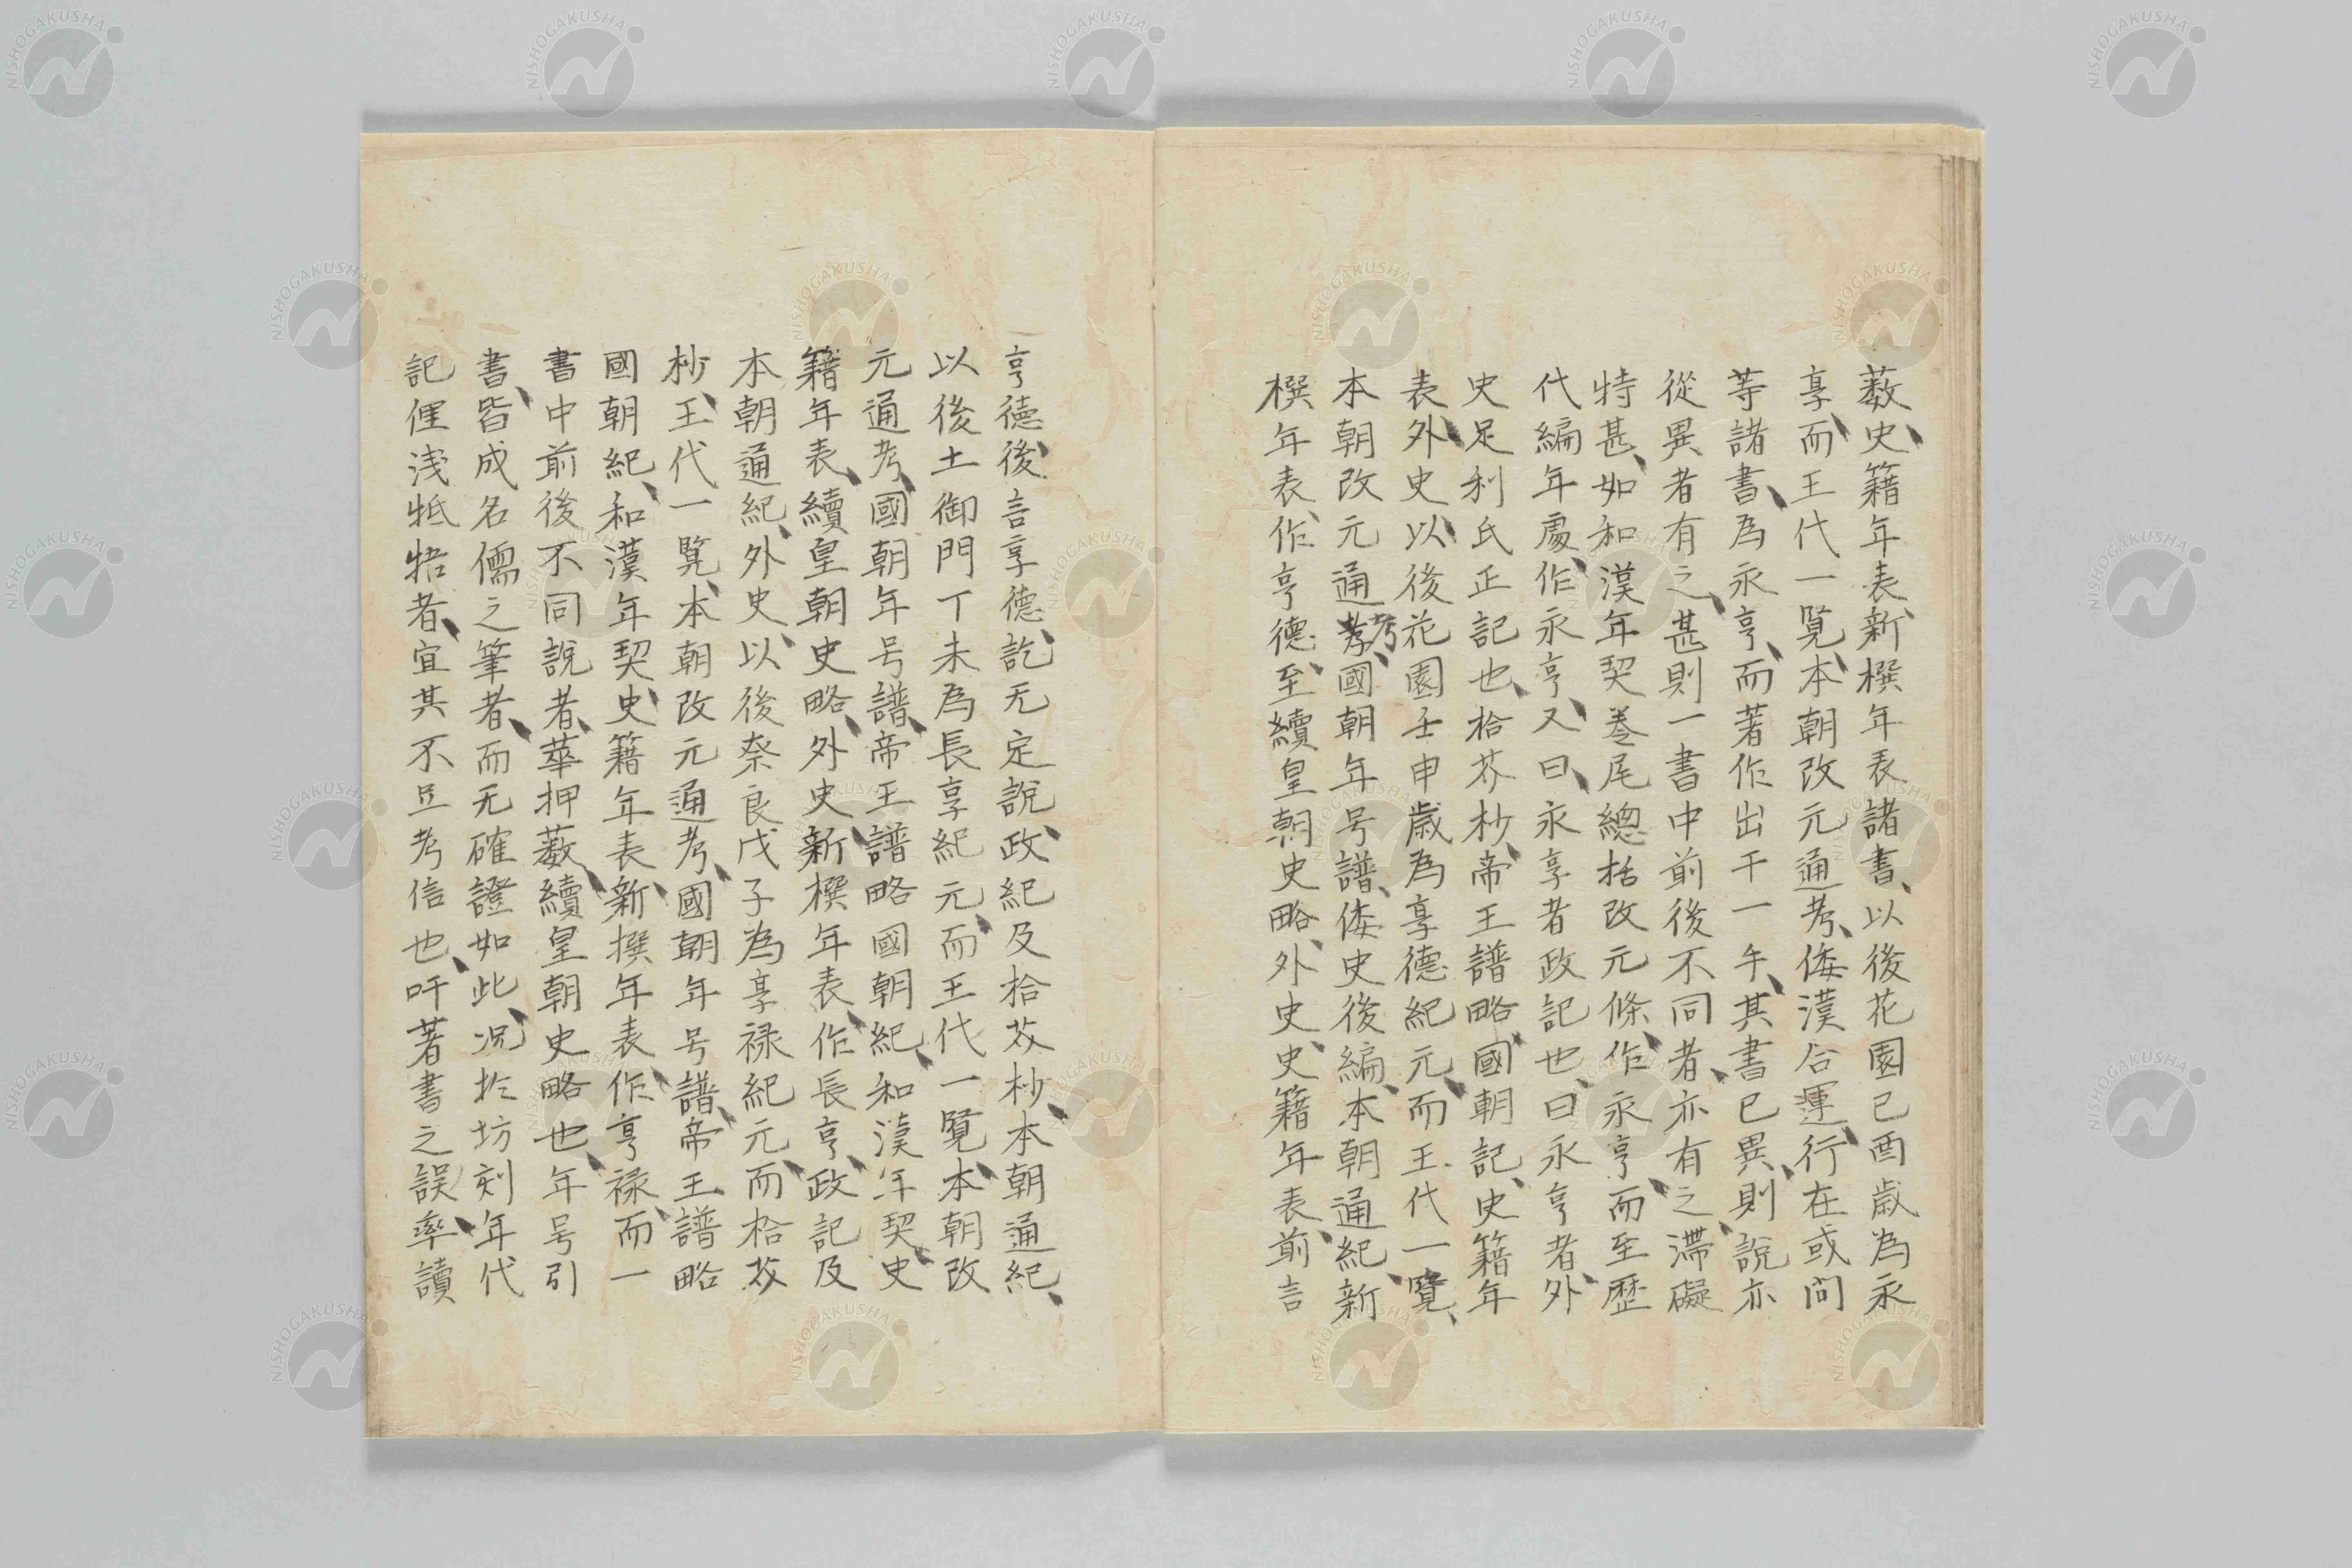 藪、史籍年表、新撰年表諸書、以後花園己酉歳為永
享、而王代一覧、本朝改元通考、倭漢合運、行在或問
等諸書、為永亨、而著作出于一午、其書已異、則説亦
從異者有之、甚則一書中前後不同者、亦有之、滯礙
特甚、如和漢年契巻尾總括改元條、作永亨、而至歴
代編年處、作永亨、又曰、永享者政記也、曰永亨者、外
史足利氏正記也、拾芥杪、帝王譜略、國朝記、史籍年
表、外史、以後花園壬申歳為享德紀元、而王代一覽、
本朝改元通考、國朝年号譜、倭史後編、本朝通紀、新
撰年表、作亨德、至續皇朝史略、外史、史籍年表、前言
亨德、後言享德、訖无定説、政紀及拾芥杪、本朝通紀、
以後土御門丁未為長享紀元、而王代一覽、本朝改
元通考、國朝年号譜、帝王譜略國朝紀、和漢年契、史
籍年表、續皇朝史略、外史、新撰年表、作長亨、政記及
本朝通紀、外史、以後奈良戊子為享禄紀元、而拾芥
杪、王代一覧、本朝改元通考、國朝年号譜、帝王譜略
國朝紀、和漢年契、史籍年表、新撰年表、作亨禄、而一
書中前後不同説者、華押藪、續皇朝史略也、年号引
書、皆成名儒之筆者、而无確證如此、况扵坊刻年代
記俚浅牴牾者、宜其不足考信也、吁著書之誤、率讀